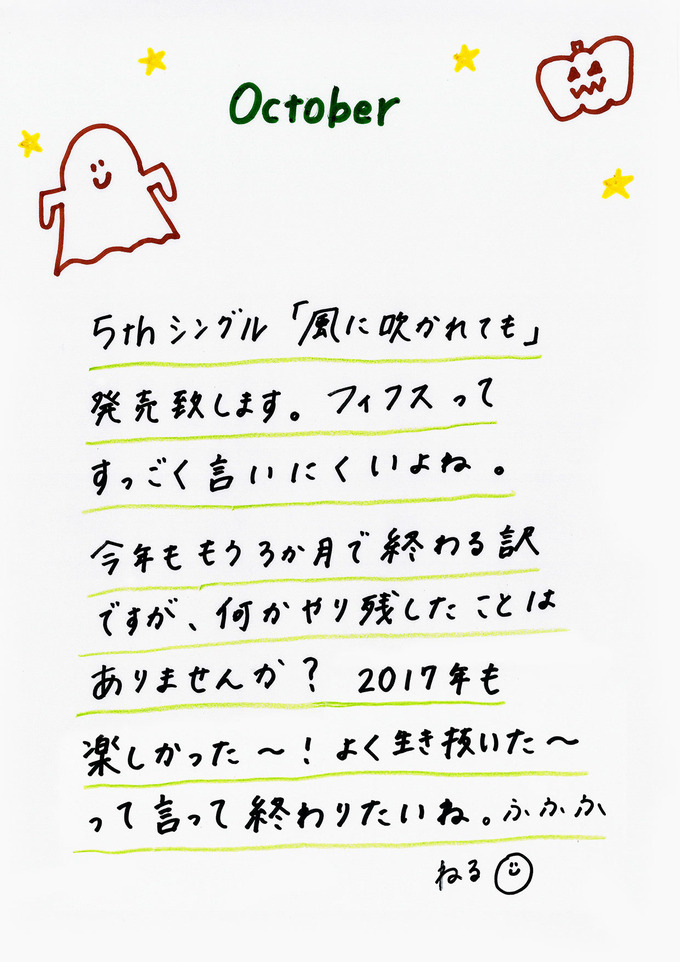 October
5thシングル「風に吹かれても」
発売致します。フィフスって
すっごく言いにくいよね。
今年ももう3か月で終わる訳
ですが、何かやり残したことは
ありませんか？ 2017年も
楽しかった〜！よく生き抜いた〜
って言って終わりたいね。ふかふか
ねる